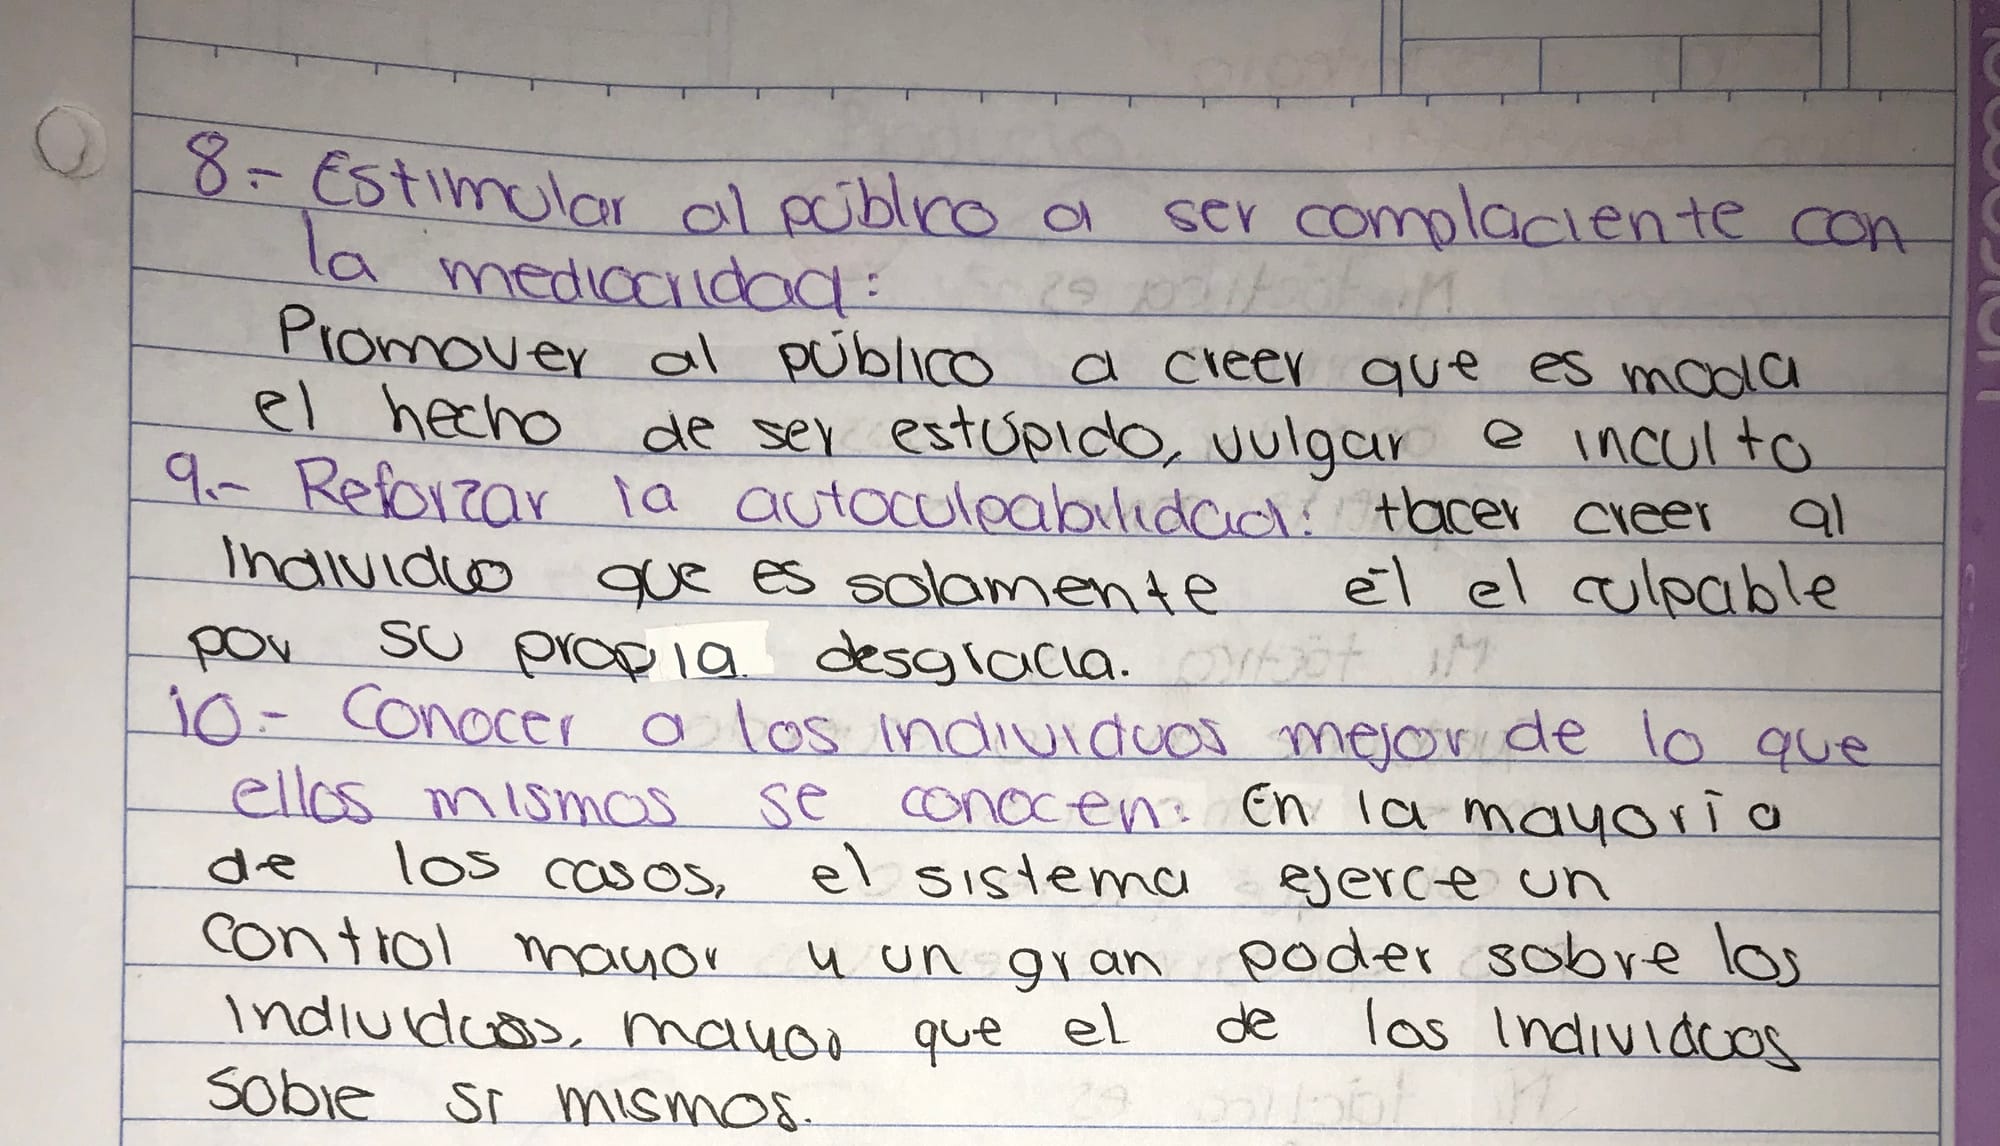 8.- Estimular al público a ser complaciente con
la mediocridad:
Promover al público a creer que es moda
el hecho de ser estúpido, vulgar e inculto
9.- Reforzar la autoculpabilidad: Hacer creer al
individuo que es solamente él el culpable
por su propia desgracia.
10.- Conocer a los individuos mejor de lo que
ellos mismos se conocen: En la mayoría
de los casos, el sistema ejerce un
control mayor y un gran poder sobre los
individuos, mayor que el de los individuos
sobre sí mismos.